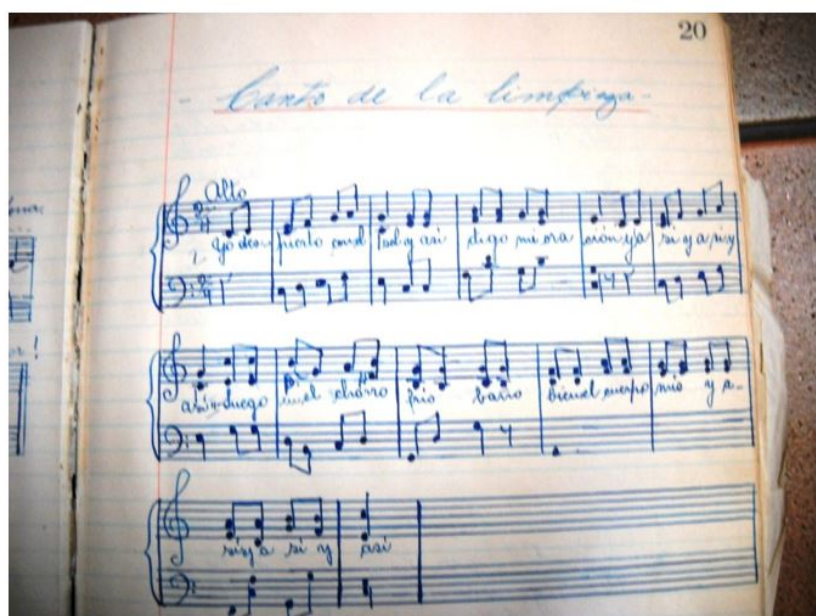 20
- Canto de la limpieza -
Alto
Yo des pierto con el sol y asi digo mi ora ción y a si y a si y
asi luego en el chorro frio baño bien el cuerpo mio y a-
si y a si y asi